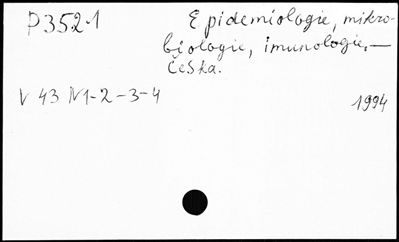 P3521 Epidemiologie, mikro-
biologie, imunologie,—
Česka.
V 43 N1-2-3-4 1994